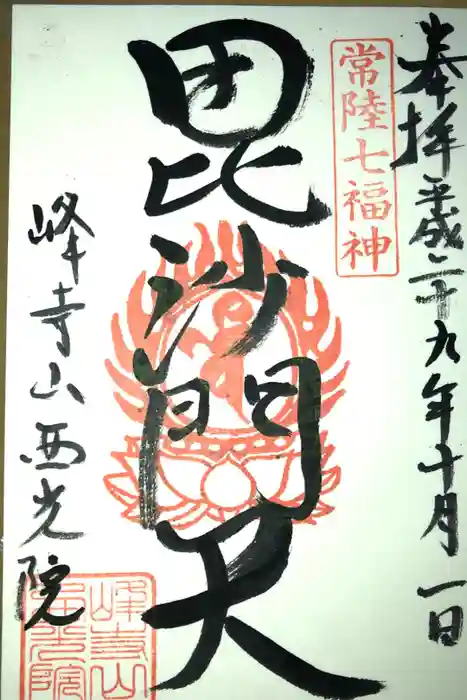 奉拝 平成二十九年十月一日
常陸七福神
毘沙門天
峰寺山西光院
峰寺山
西光院